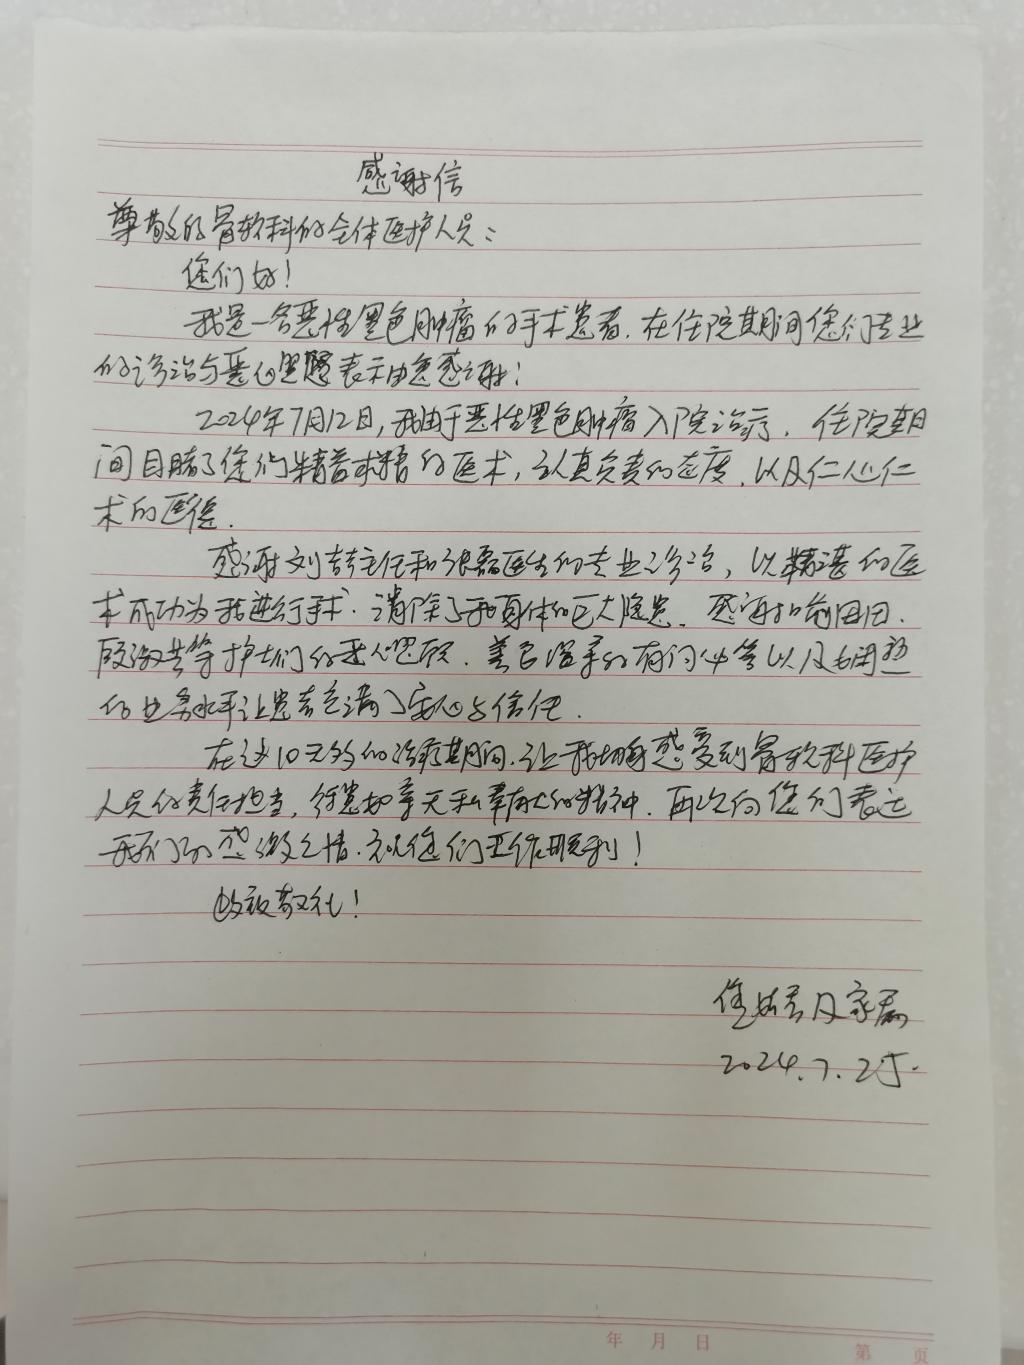 感谢信
尊敬的骨软科的全体医护人员：
您们好！
我是一名恶性黑色肿瘤的手术患者.在住院期间您们专业
的诊治与悉心照顾表示由衷感谢！
2024年7月12日，我由于恶性黑色肿瘤入院治疗.住院期
间目睹了您们精益求精的医术，认真负责的态度.以及仁心仁
术的医德.
感谢刘主任和张磊医生的专业诊治，以精湛的医
术成功为我进行手术.消除了我身体的巨大隐患.感谢
等护士们的悉心照顾.温柔的有问必答以及娴熟
的业务水平让患者充满了安心与信任.
在这10天多的治疗期间.让我切身感受到骨软科医护
人员的责任担当，无私奉献的精神.再次向您们表达
我们的感激之情.祝您们工作顺利！
此致敬礼！
及家属
2024.7.25.
年 月 日
第 页